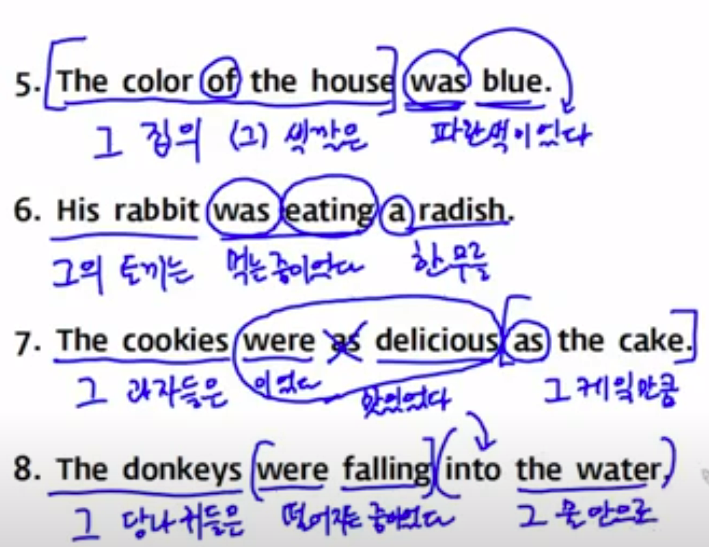 5. The color of the house was blue.
그 집의 (그) 색깔은 파란색이었다
6. His rabbit was eating a radish.
그의 토끼는 먹는중이었다 한 무를
7. The cookies were as delicious as the cake.
그 과자들은 이었다 맛있었다 그 케익만큼
8. The donkeys were falling into the water.
그 당나귀들은 떨어지는 중이었다 그 물 안으로